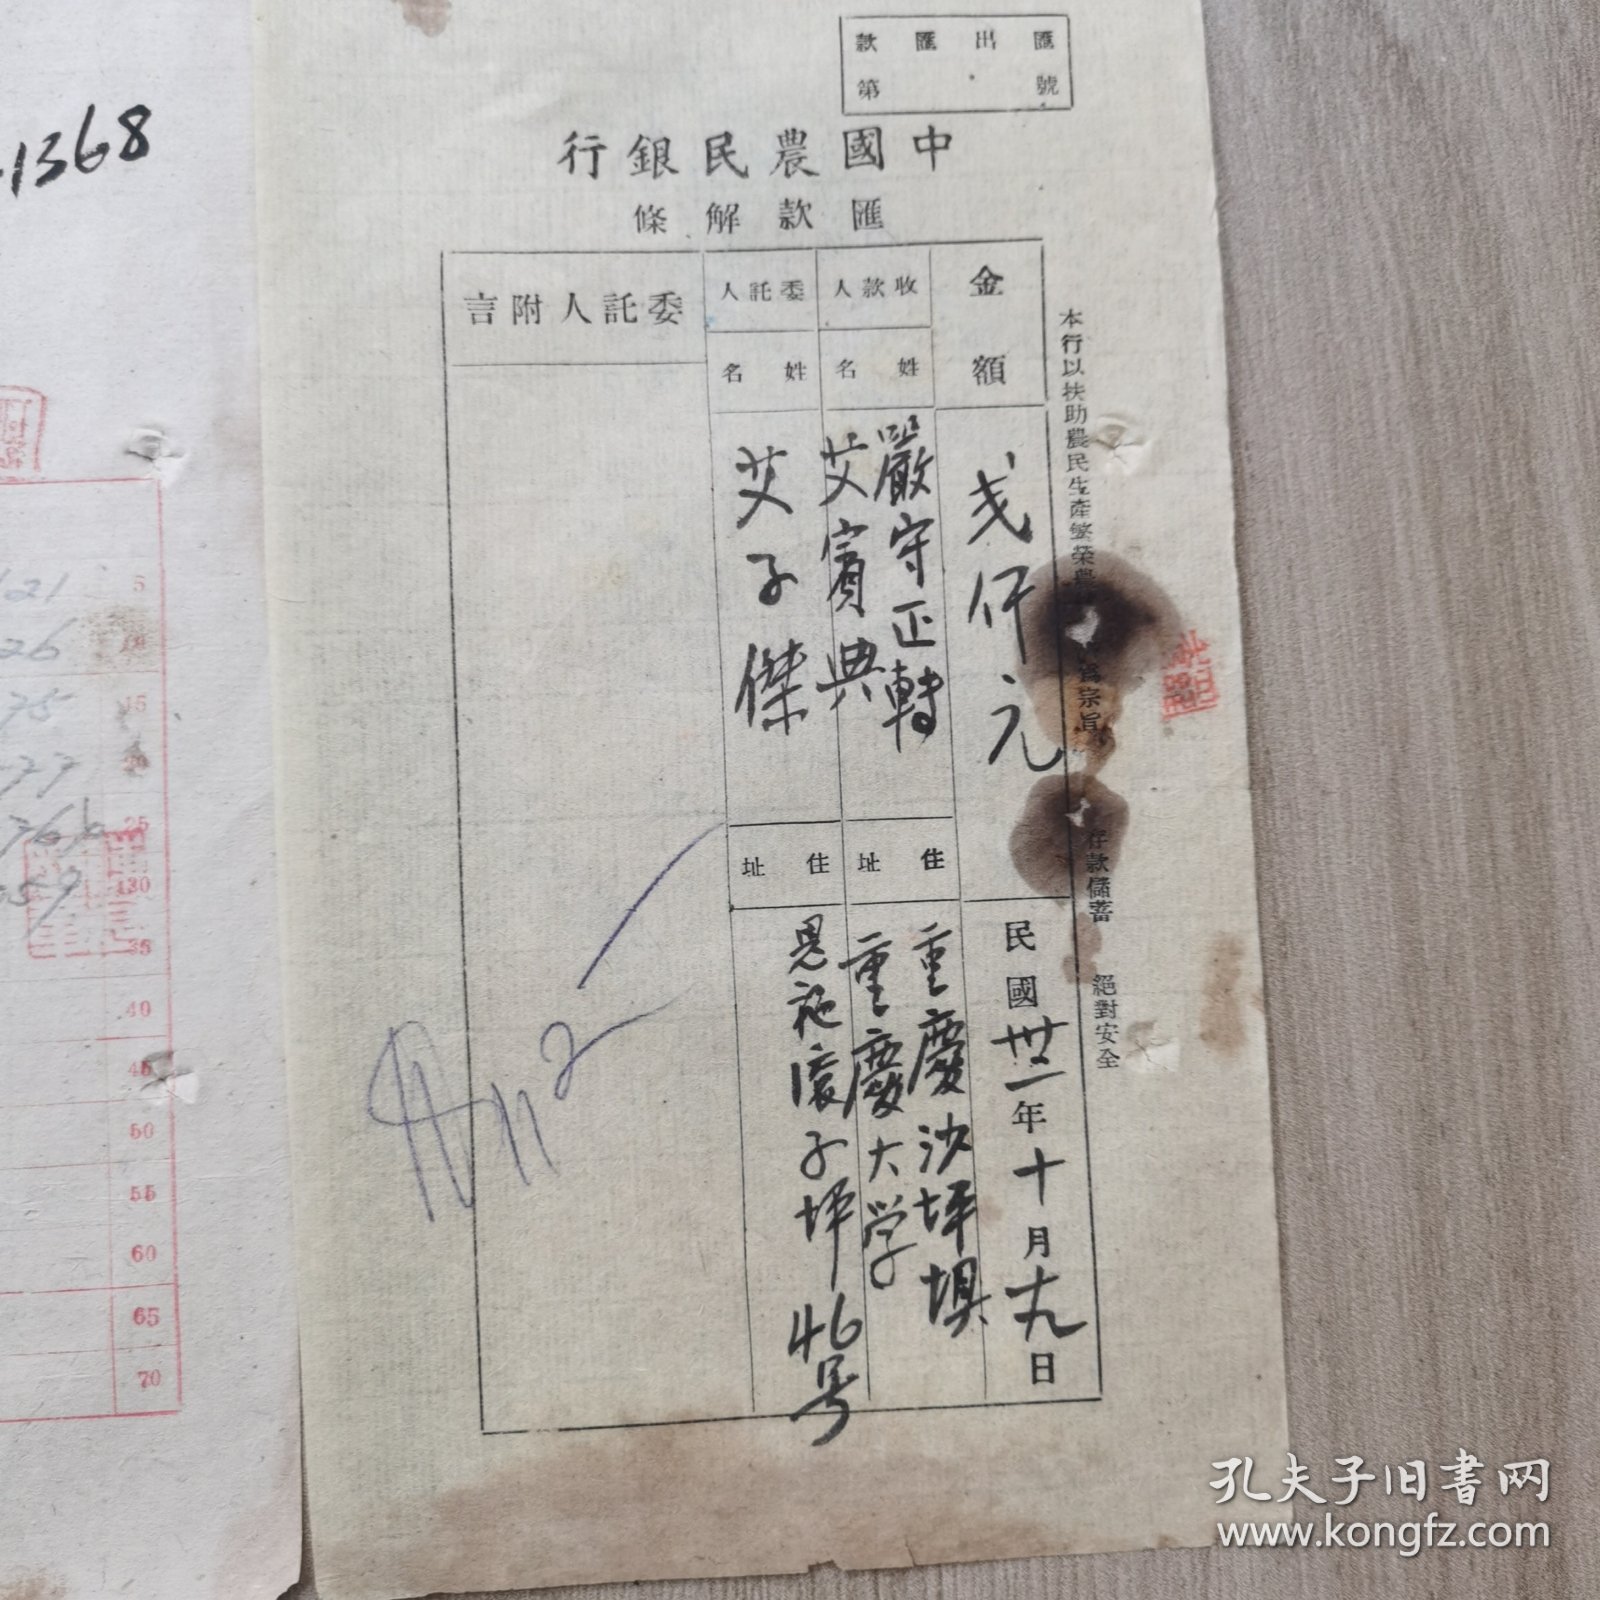 匯出匯款
第 號
中國農民銀行
匯款解條
金額
弍仟元
民國卅二年十月十九日
收款人
姓名
嚴守正轉
艾賓典
住址
重慶沙坪埧
重慶大学
委託人
姓名
艾子傑
住址
恩施
子坪46号
委託人附言
本行以扶助農民生產繁榮農
為宗旨
存款儲蓄
絕對安全
1368
112
5
15
20
25
30
35
40
45
50
55
60
65
70
孔夫子旧書网
www.kongfz.com